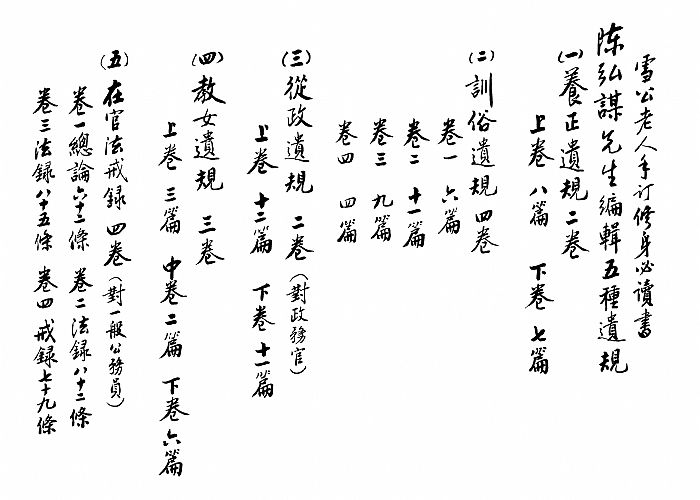 雪公老人手订修身必讀書
陈弘謀先生編輯五種遺規
(一)養正遺規二卷
上卷八篇 下卷七篇
(二)訓俗遺規四卷
卷一 六篇
卷二 十一篇
卷三 九篇
卷四 四篇
(三)從政遺規 二卷(對政務官)
上卷 十二篇 下卷 十一篇
(四)教女遺規 三卷
上卷 三篇 中卷二篇 下卷六篇
(五)在官法戒録 四卷(對一般公務員)
卷一總論六十二條 卷二法録八十二條
卷三法録八十五條 卷四戒録七十九條